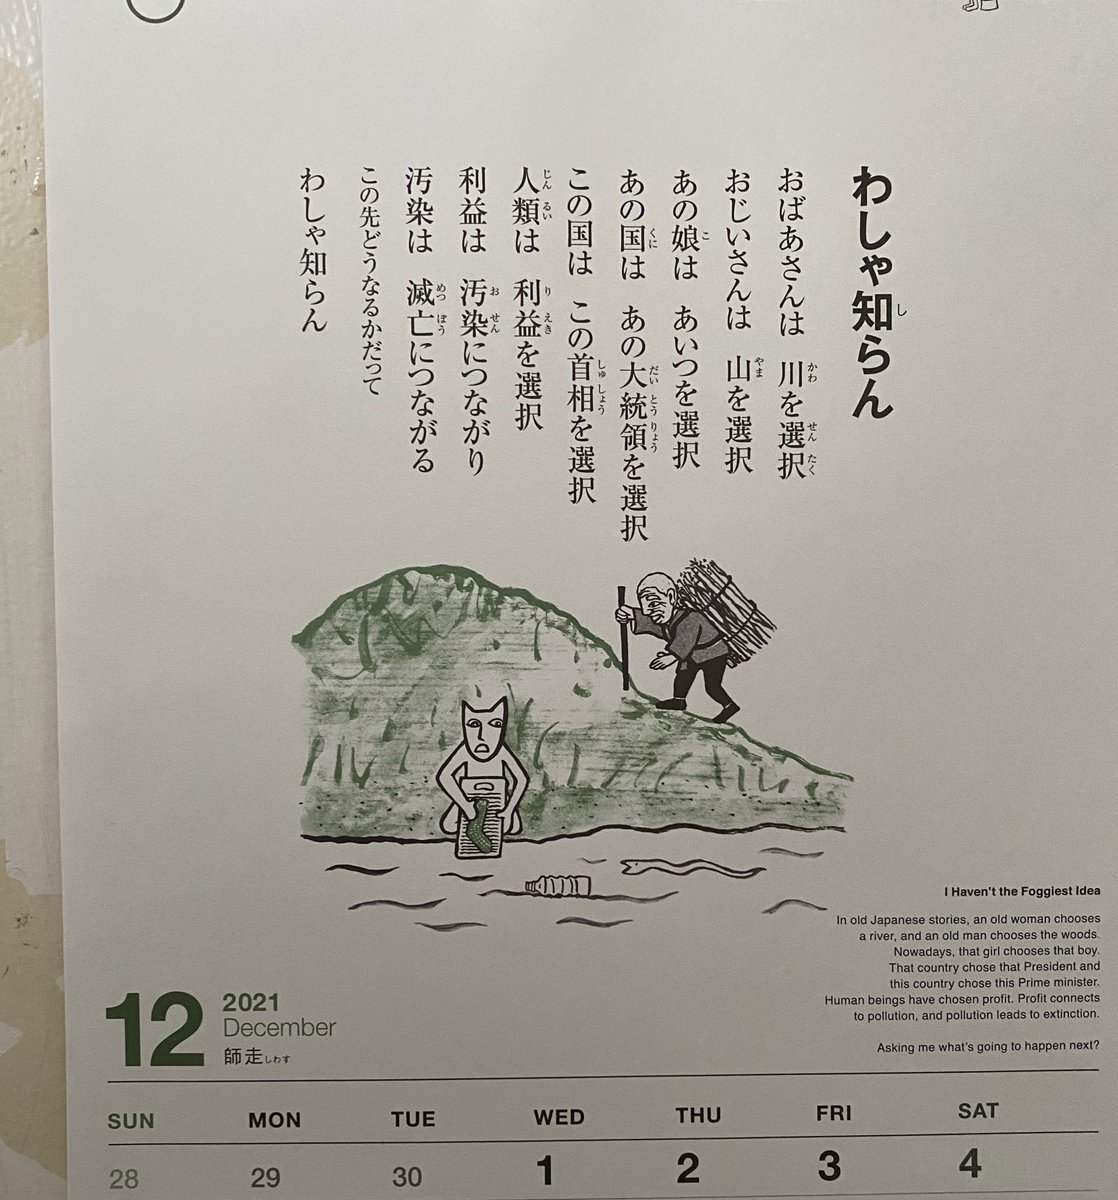 わしゃ知らん
おばあさんは　川を選択
おじいさんは　山を選択
あの娘は　あいつを選択
あの国は　あの大統領を選択
この国は　この首相を選択
人類は　利益を選択
利益は　汚染につながり
汚染は　滅亡につながる
この先どうなるかだって
わしゃ知らん
I Haven't the Foggiest Idea
In old Japanese stories, an old woman chooses
a river, and an old man chooses the woods.
Nowadays, that girl chooses that boy.
That country chose that President and
this country chose this Prime minister.
Human beings have chosen profit. Profit connects
to pollution, and pollution leads to extinction.
Asking me what's going to happen next?
12
2021
December
師走しわす
SUN MON TUE WED THU FRI SAT
28 29 30 1 2 3 4